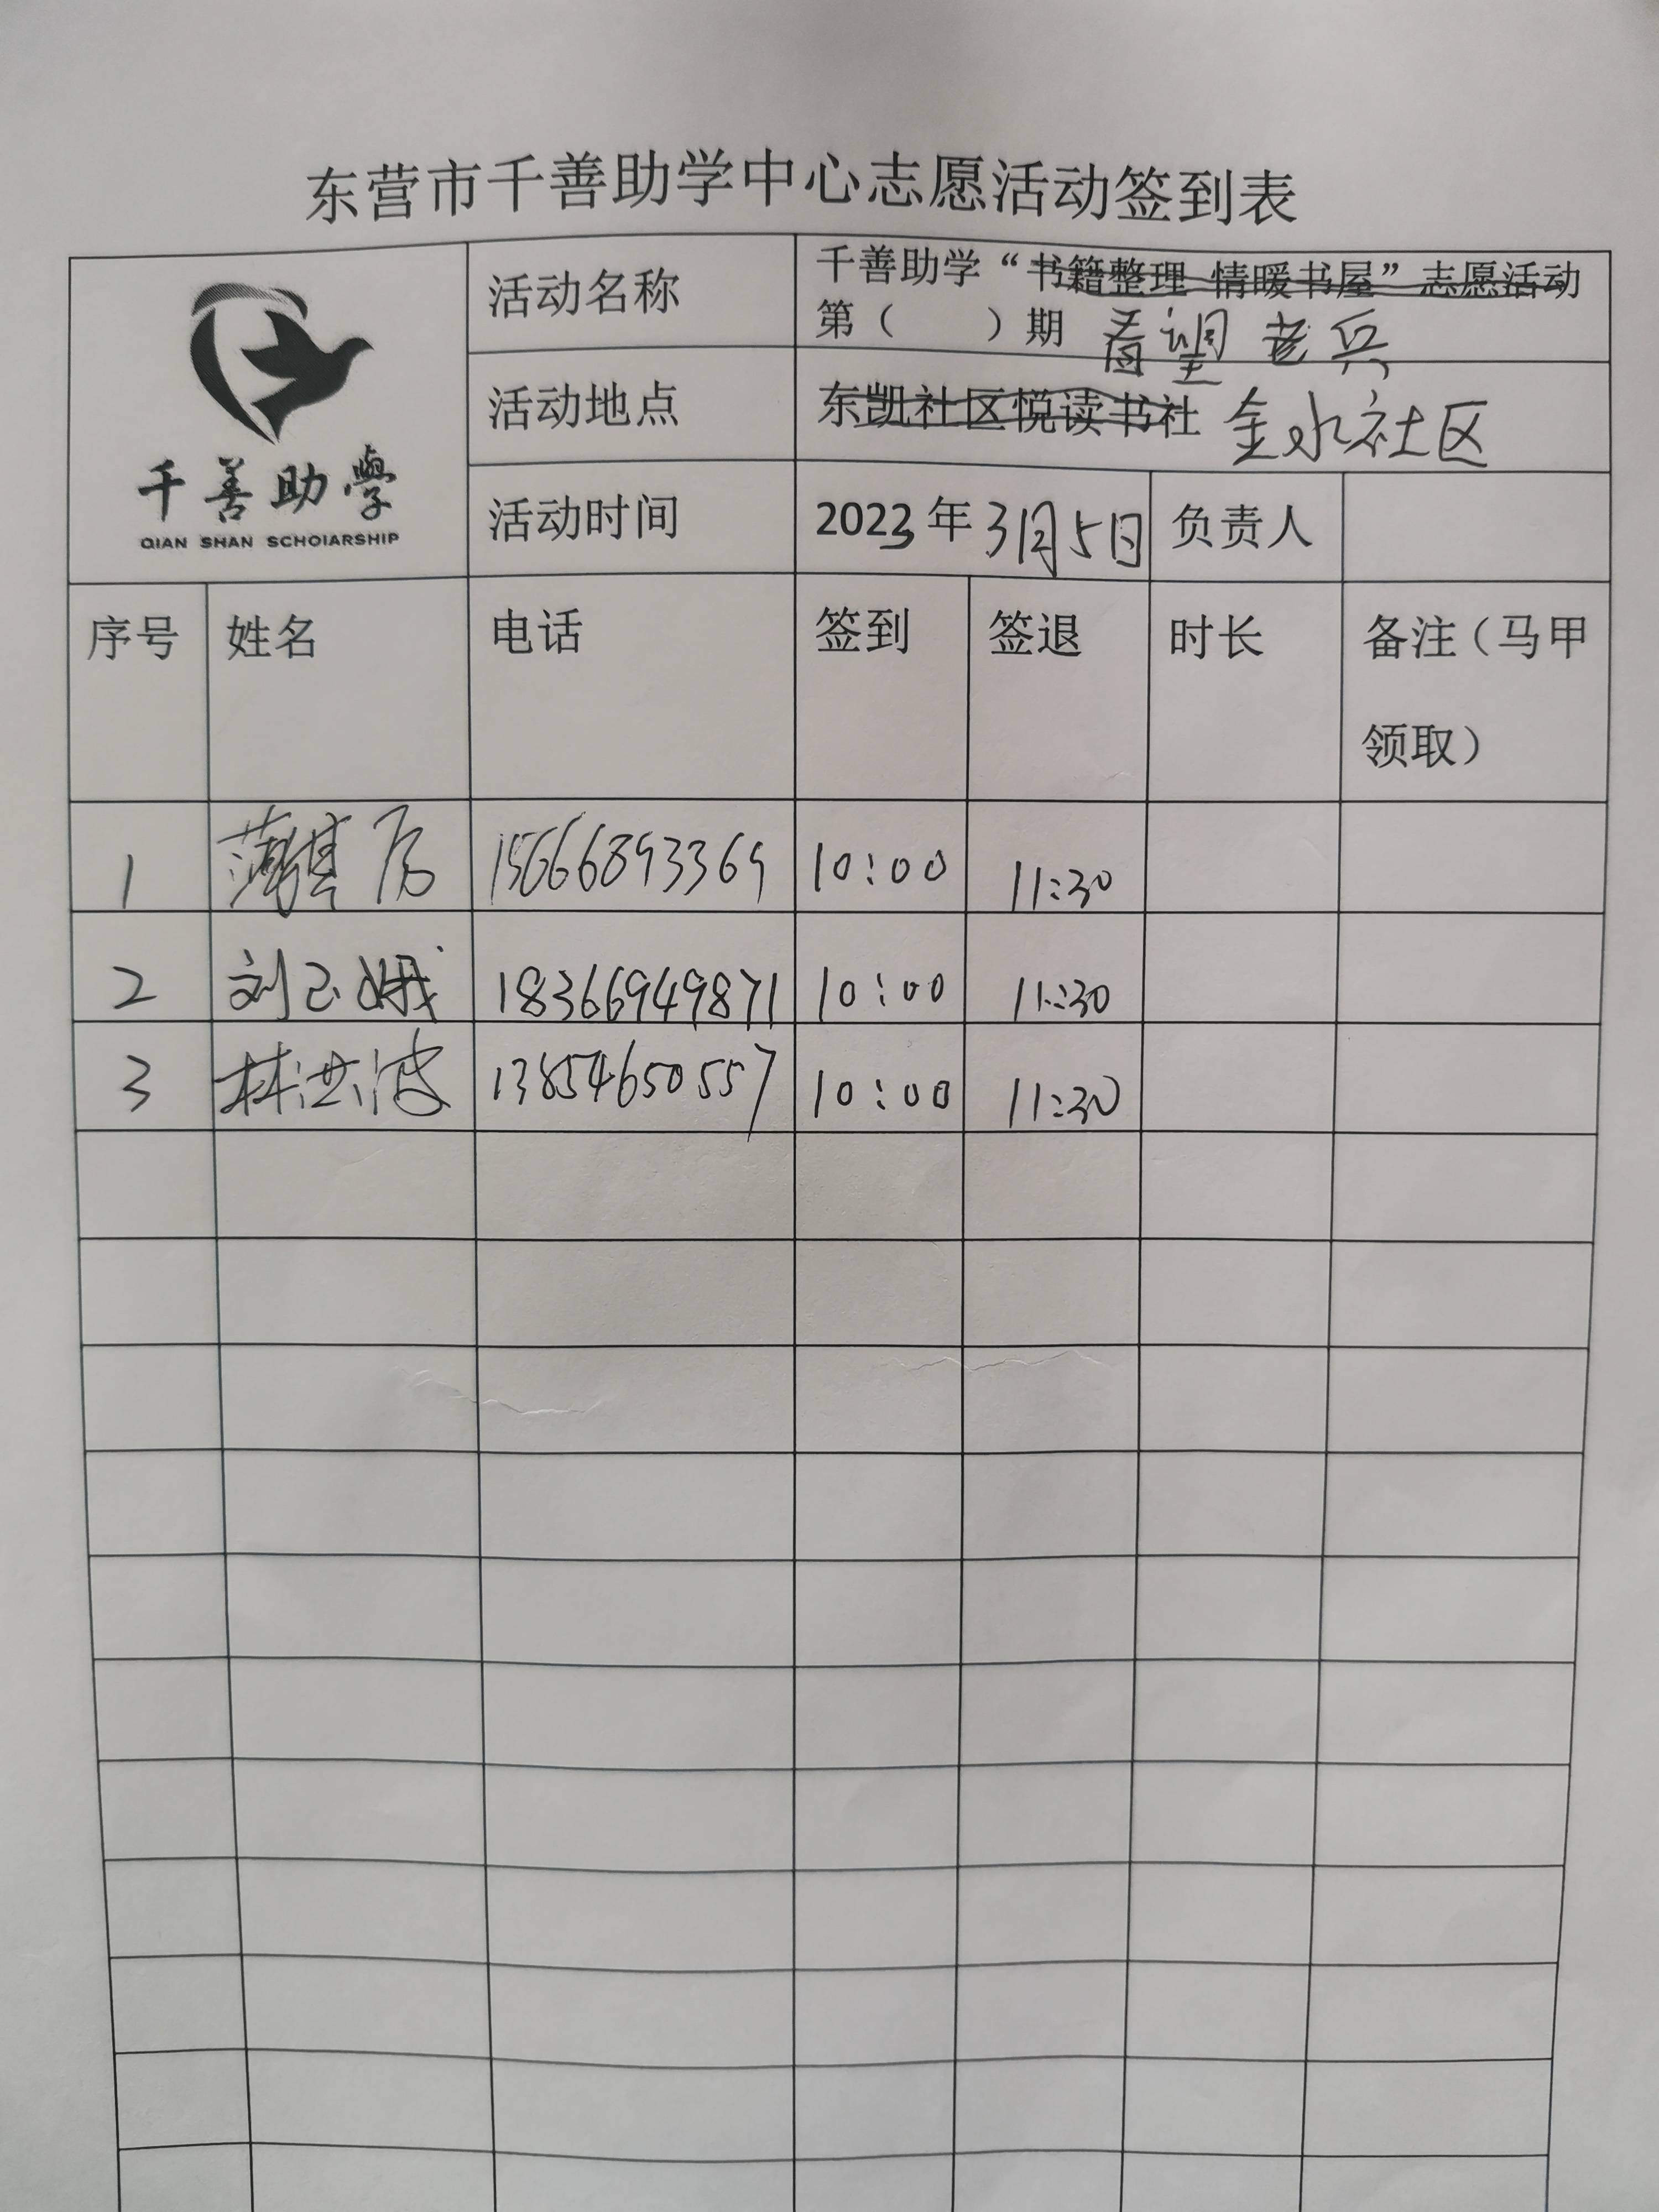 东营市千善助学中心志愿活动签到表
千善助學
QIAN SHAN SCHOIARSHIP
活动名称
千善助学“书籍整理 情暖书屋”志愿活动
第（ ）期 看望老兵
活动地点
东凯社区悦读书社 金水社区
活动时间 2023年3月5日 负责人
序号 姓名 电话 签到 签退 时长 备注（马甲
领取）
1 15666893369 10:00 11:30
2 刘玉娥 18366949871 10:00 11:30
3 林洪波 13854650557 10:00 11:30